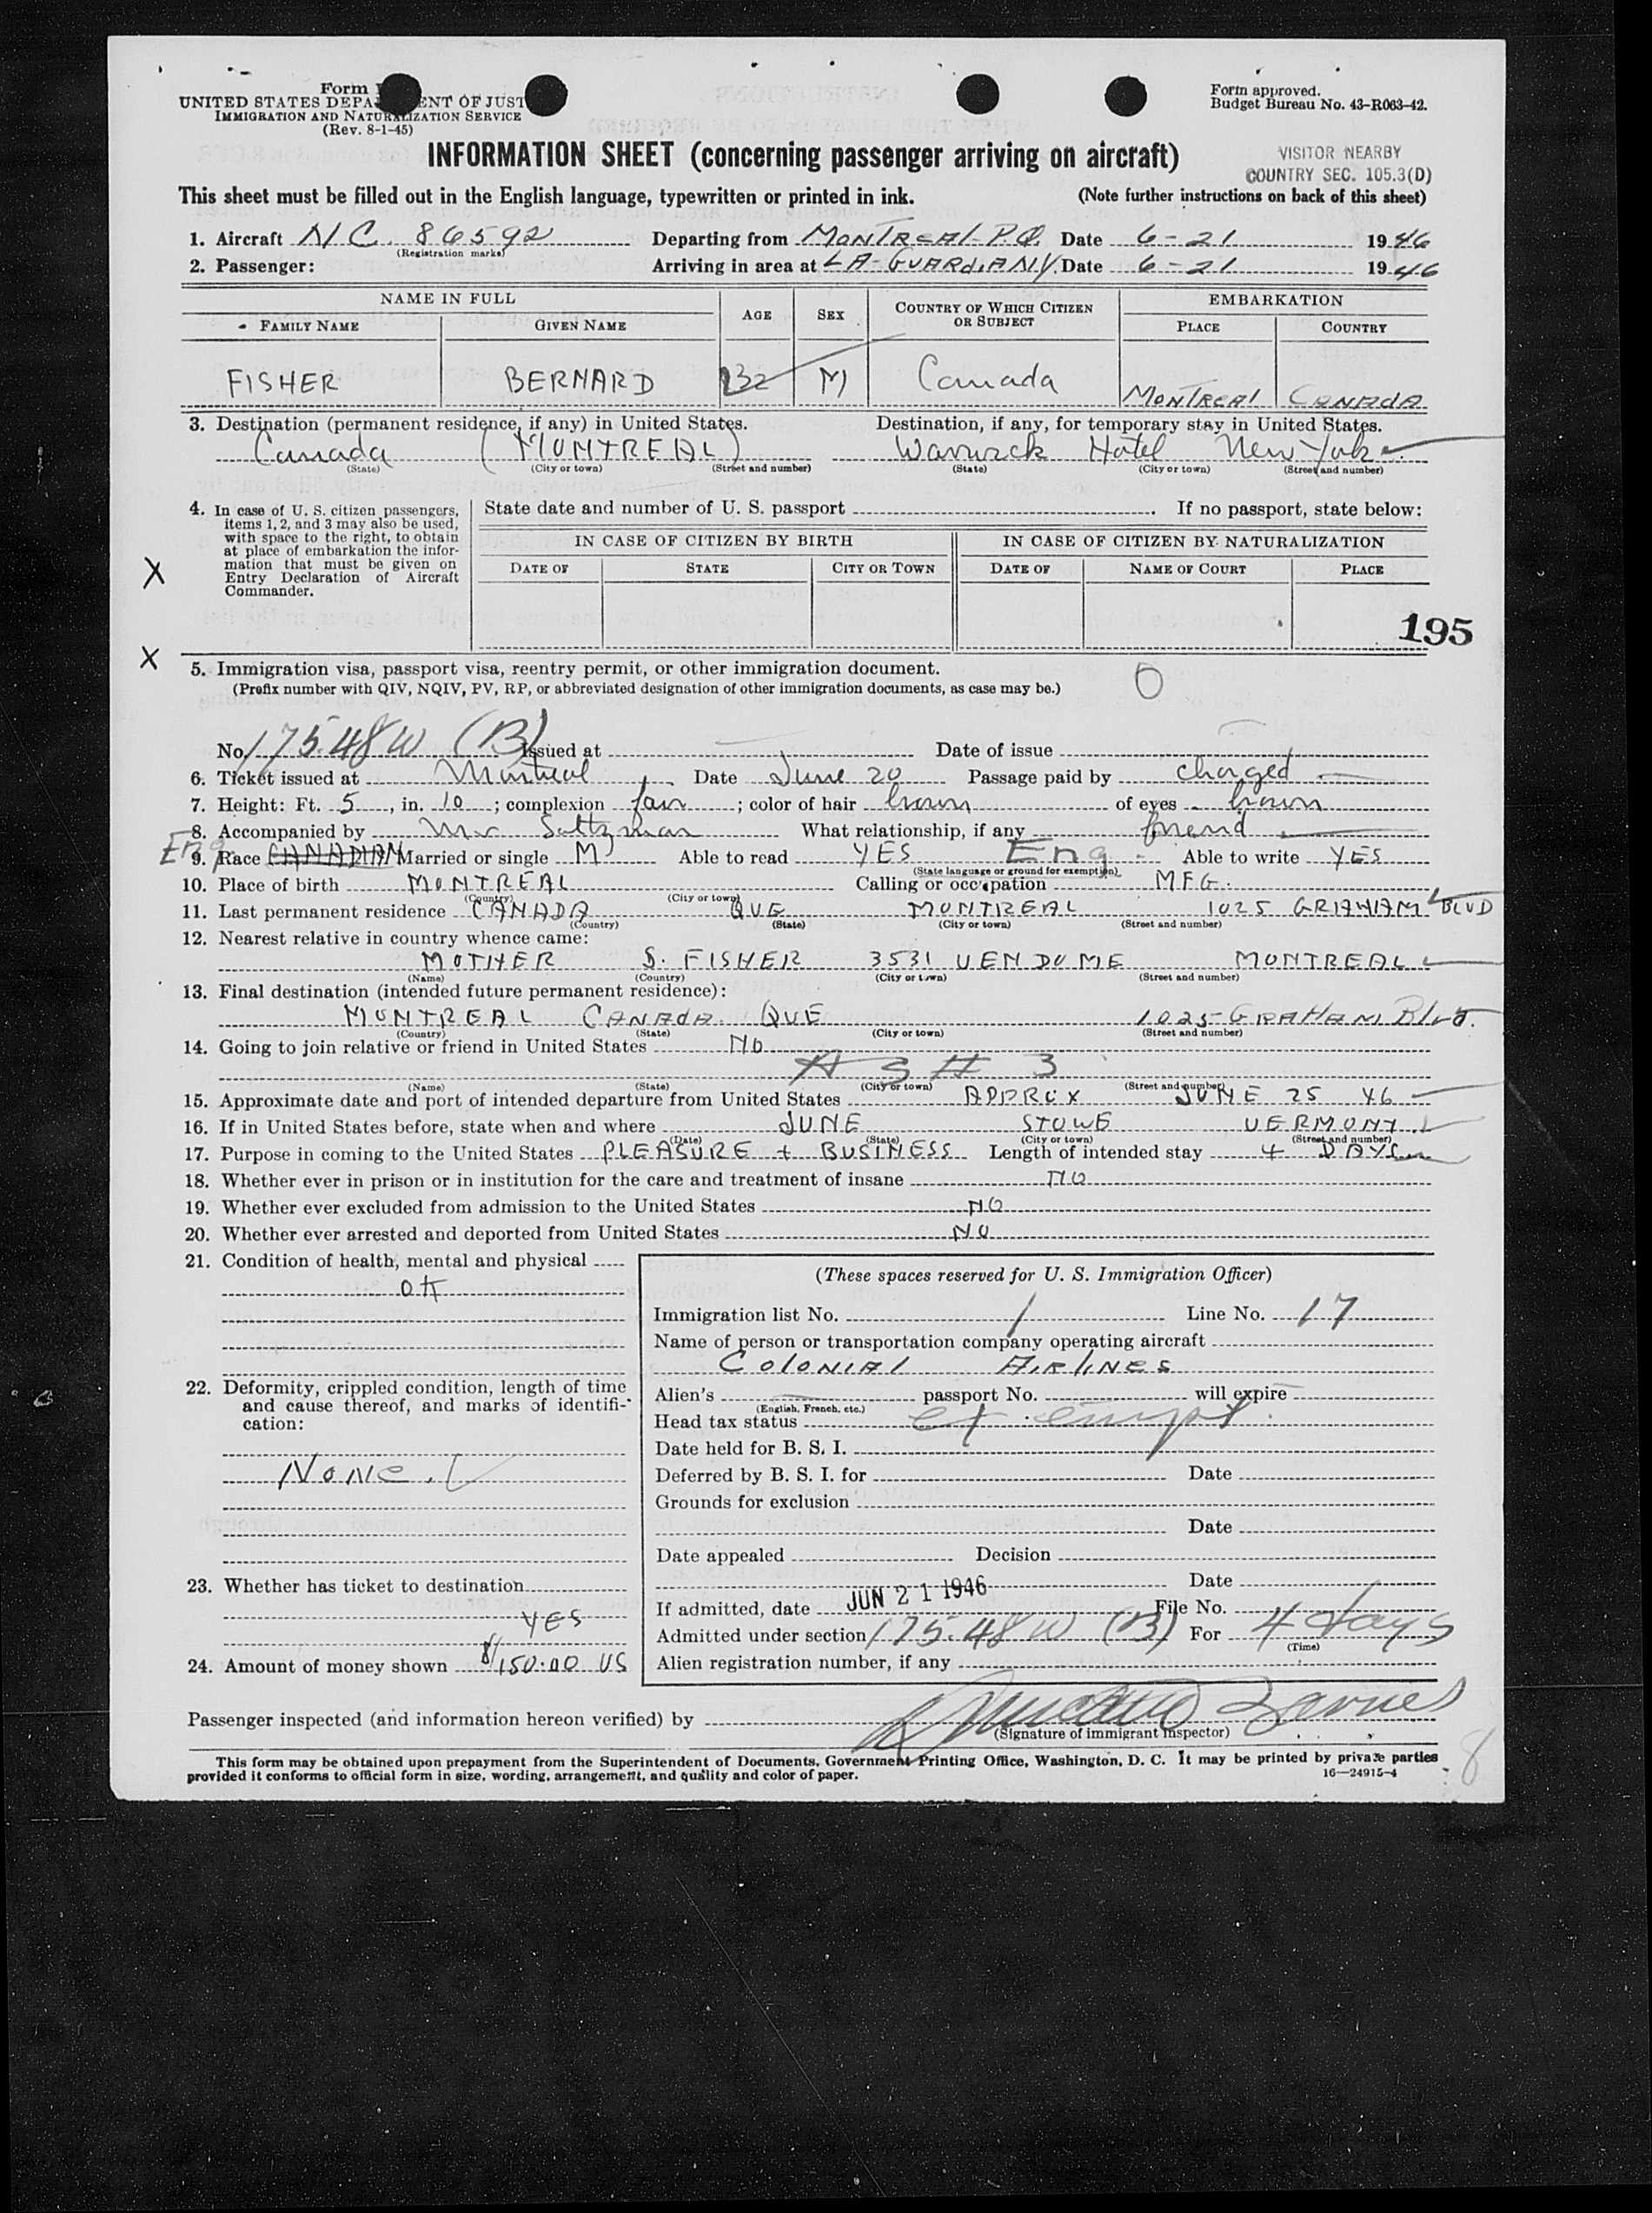 Form I
UNITED STATES DEPA ENT OF JUST
IMMIGRATION AND NATURALIZATION SERVICE
(Rev. 8-1-45)
Form approved.
Budget Bureau No. 43-R063-42.
INFORMATION SHEET (concerning passenger arriving on aircraft)
VISITOR NEARBY
COUNTRY SEC. 105.3(D)
This sheet must be filled out in the English language, typewritten or printed in ink. (Note further instructions on back of this sheet)
1. Aircraft NC 86592 Departing from MONTREAL P.Q. Date 6-21 1946
(Registration marks)
2. Passenger: Arriving in area at LA-GUARDIA NY Date 6-21 1946
NAME IN FULL AGE SEX COUNTRY OF WHICH CITIZEN OR SUBJECT EMBARKATION
FAMILY NAME GIVEN NAME PLACE COUNTRY
FISHER BERNARD 32 M Canada MONTREAL CANADA
3. Destination (permanent residence, if any) in United States. Destination, if any, for temporary stay in United States.
Canada (MONTREAL) Warwick Hotel New York
(State) (City or town) (Street and number) (State) (City or town) (Street and number)
4. In case of U. S. citizen passengers, items 1, 2, and 3 may also be used, with space to the right, to obtain at place of embarkation the information that must be given on Entry Declaration of Aircraft Commander.
State date and number of U. S. passport . If no passport, state below:
IN CASE OF CITIZEN BY BIRTH IN CASE OF CITIZEN BY NATURALIZATION
DATE OF STATE CITY OR TOWN DATE OF NAME OF COURT PLACE
X
195
X
5. Immigration visa, passport visa, reentry permit, or other immigration document.
(Prefix number with QIV, NQIV, PV, RP, or abbreviated designation of other immigration documents, as case may be.) 0
No. 175.48W (B) Issued at Date of issue
6. Ticket issued at Montreal Date June 20 Passage paid by charged
7. Height: Ft. 5, in. 10; complexion fair; color of hair brown of eyes brown
8. Accompanied by Mr Saltzman What relationship, if any friend
Eng
9. Race CANADIAN Married or single M Able to read YES Eng. Able to write YES
(State language or ground for exemption)
10. Place of birth MONTREAL Calling or occupation MFG.
(Country) (City or town)
11. Last permanent residence CANADA QUE MONTREAL 1025 GRAHAM BLVD
(Country) (State) (City or town) (Street and number)
12. Nearest relative in country whence came:
MOTHER S. FISHER 3531 VENDOME MONTREAL
(Name) (Country) (City or town) (Street and number)
13. Final destination (intended future permanent residence):
MONTREAL CANADA. QUE 1025 GRAHAM Blvd.
(Country) (State) (City or town) (Street and number)
14. Going to join relative or friend in United States NO
(Name) (State) (City or town) (Street and number)
15. Approximate date and port of intended departure from United States APPROX JUNE 25 46
16. If in United States before, state when and where JUNE STOWE VERMONT
(Date) (State) (City or town) (Street and number)
17. Purpose in coming to the United States PLEASURE + BUSINESS Length of intended stay 4 DAYS
18. Whether ever in prison or in institution for the care and treatment of insane NO
19. Whether ever excluded from admission to the United States NO
20. Whether ever arrested and deported from United States NO
21. Condition of health, mental and physical
OK
22. Deformity, crippled condition, length of time and cause thereof, and marks of identification:
None.
23. Whether has ticket to destination
YES
24. Amount of money shown $150.00 US
(These spaces reserved for U. S. Immigration Officer)
Immigration list No. 1 Line No. 17
Name of person or transportation company operating aircraft
COLONIAL AIRLINES
Alien's passport No. will expire
(English, French, etc.)
Head tax status exempt
Date held for B. S. I.
Deferred by B. S. I. for Date
Grounds for exclusion
Date
Date appealed Decision
Date
If admitted, date JUN 21 1946 File No.
Admitted under section 175.48W (B) For 4 days
(Time)
Alien registration number, if any
Passenger inspected (and information hereon verified) by
(Signature of immigrant inspector)
This form may be obtained upon prepayment from the Superintendent of Documents, Government Printing Office, Washington, D. C. It may be printed by private parties
provided it conforms to official form in size, wording, arrangement, and quality and color of paper. 16—24915-4
8